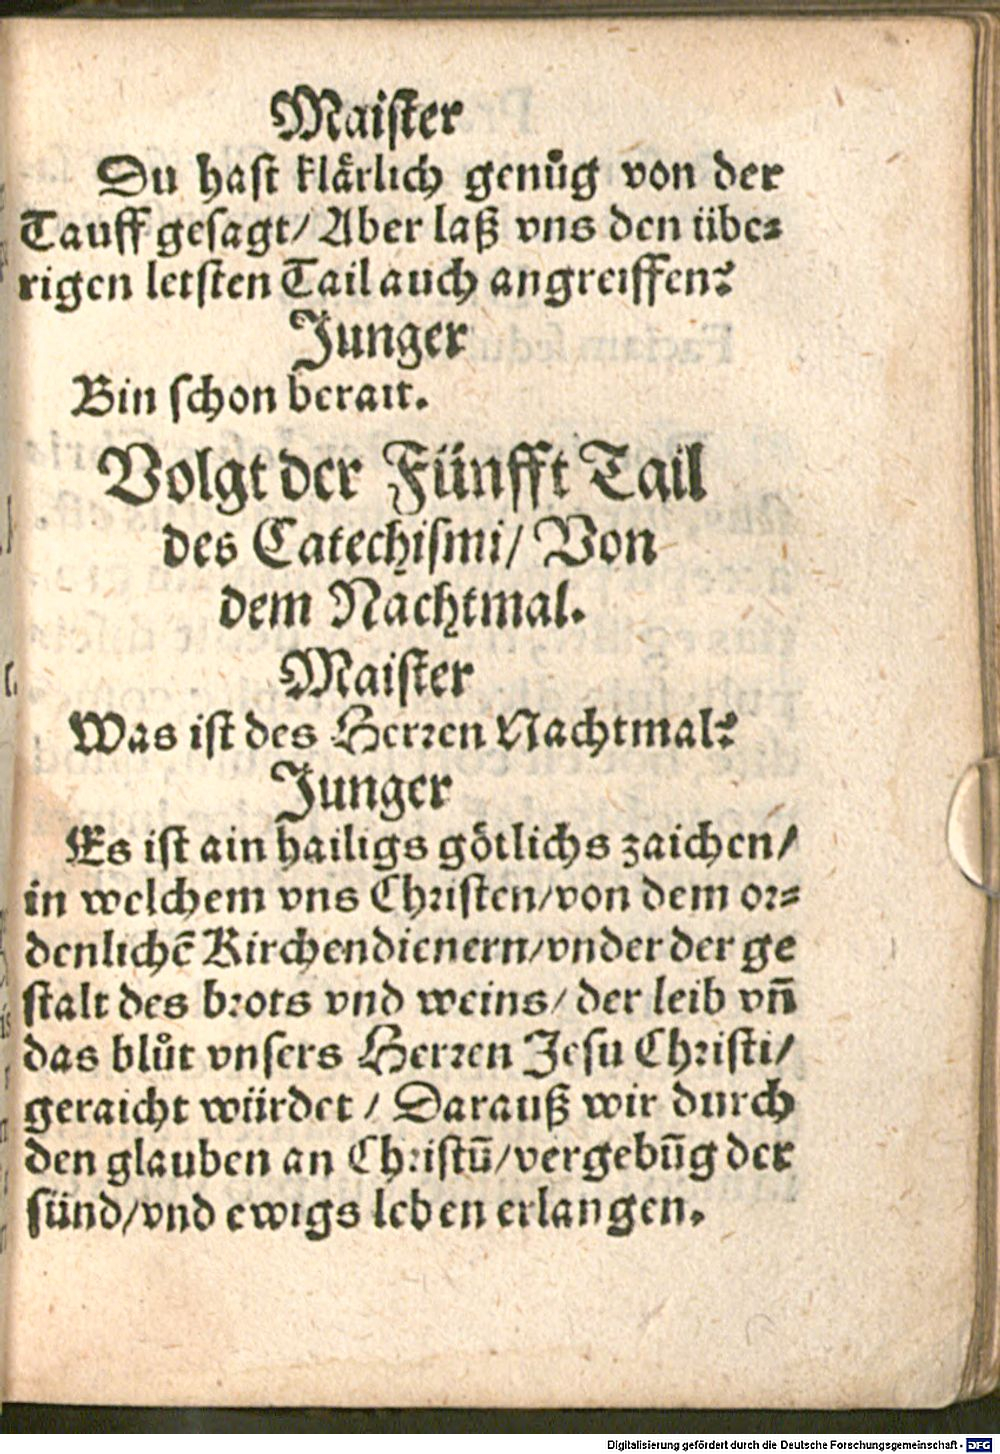 Maister
Du haſt klårlich genůg von der
Tauff geſagt/ Aber laß vns den übe⸗
rigen letſten Tail auch angreiffen?
Junger
Bin ſchon berait.
Volgt der Fünfft Tail
des Catechiſmi/ Von
dem Nachtmal.
Maister
Was iſt des Herren Nachtmal?
Junger
Es iſt ain hailigs gȯtlichs zaichen/
in welchem vns Chriſten/von dem or⸗
denlichē Kirchendienern/vnder der ge
ſtalt des brots vnd weins/ der leib vñ
das blůt vnſers Herren Jeſu Chriſti/
geraicht würdet / Darauß wir durch
den glauben an Chriſtū/vergebūg der
ſünd/vnd ewigs leben erlangen.
Digitalisierung gefördert durch die Deutsche Forschungsgemeinschaft - DFG